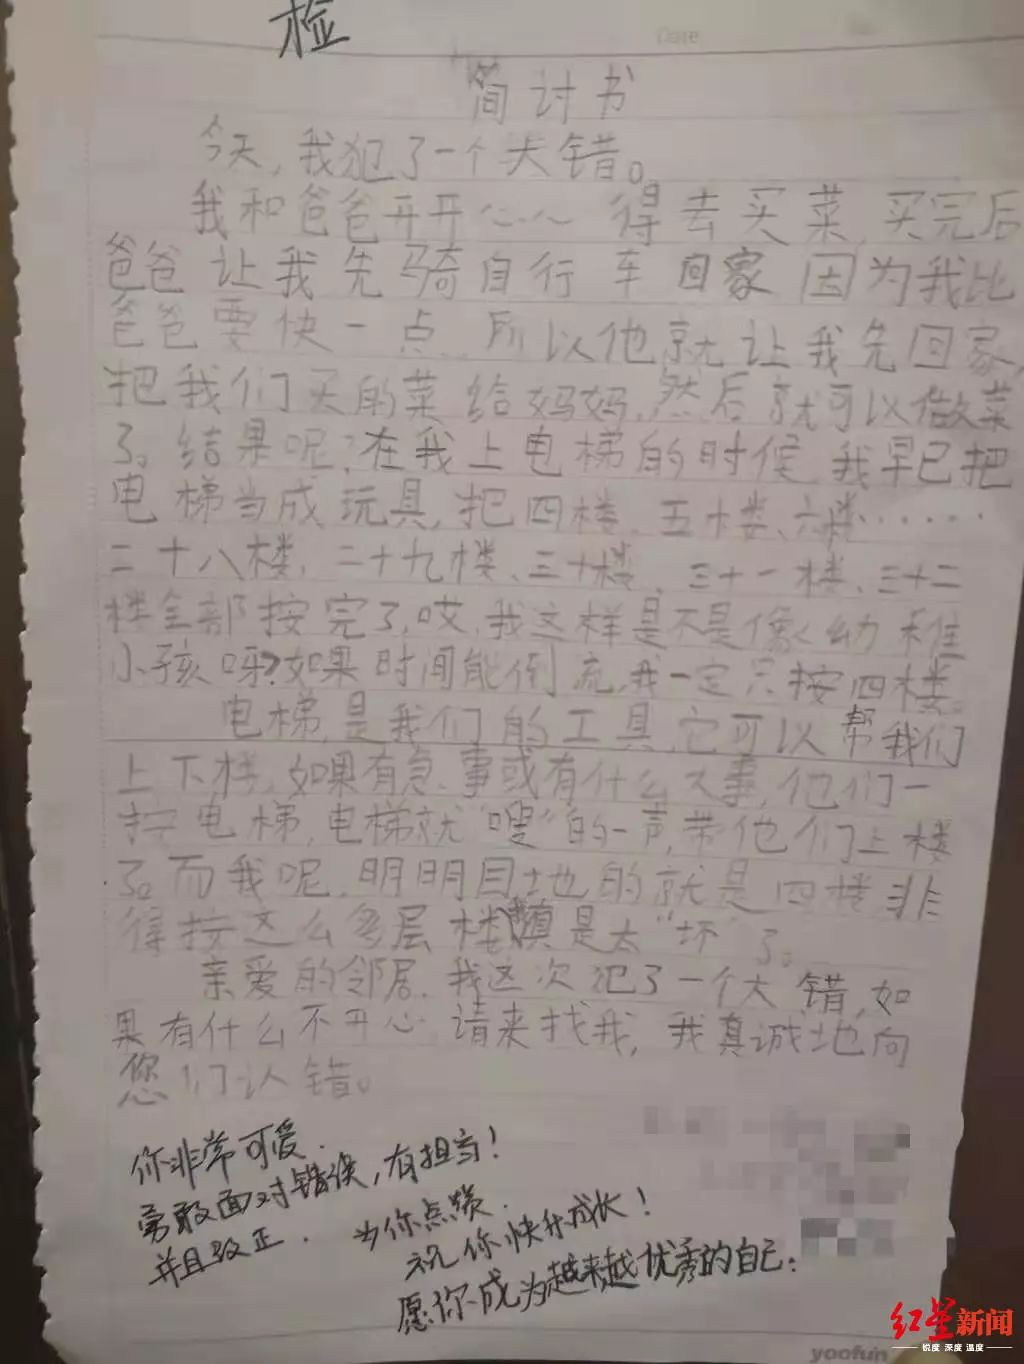 检
Date
简讨书
今天,我犯了一个大错。
我和爸爸开开心心得去买菜,买完后
爸爸让我先骑自行车回家因为我比
爸爸要快一点.所以他就让我先回家,
把我们买的菜给妈妈,然后就可以做菜
了。结果呢?在我上电梯的时候,我早已把
电梯当成玩具,把四楼、五楼、六楼……
二十八楼、二十九楼、三十楼、三十一楼、三十二
楼全部按完了,哎,我这样是不是像幼稚
小孩呀?如果时间能倒流,我一定只按四楼。
电梯,是我们的工具,它可以帮我们
上下楼,如果有急事或有什么大事,他们一
按电梯,电梯就“嗖”的一声,带他们上楼
了。而我呢,明明目地的就是四楼,非
得按这么多层楼,真是太“坏”了。
亲爱的邻居,我这次犯了一个大错,如
果有什么不开心,请来找我,我真诚地向
您们认错。
你非常可爱.
勇敢面对错误,有担当!
并且改正. 为你点赞.
祝你快升成长!
愿你成为越来越优秀的自己:
红星新闻
锐度 深度 温度
yoofun